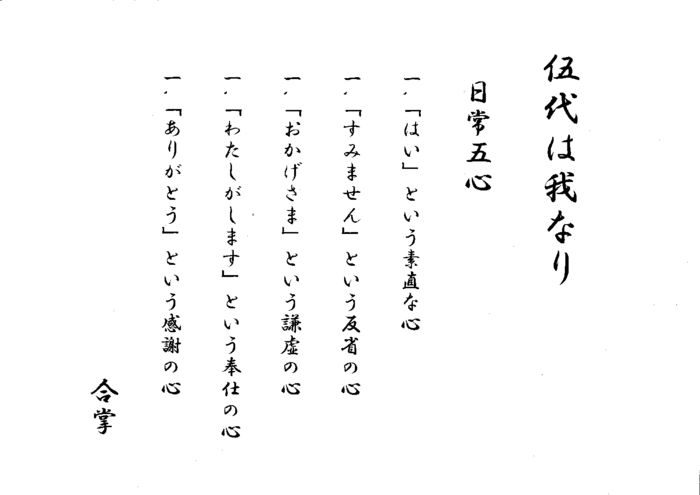 伍代は我なり
日常五心
一、「はい」という素直な心
一、「すみません」という反省の心
一、「おかげさま」という謙虚の心
一、「わたしがします」という奉仕の心
一、「ありがとう」という感謝の心
合掌